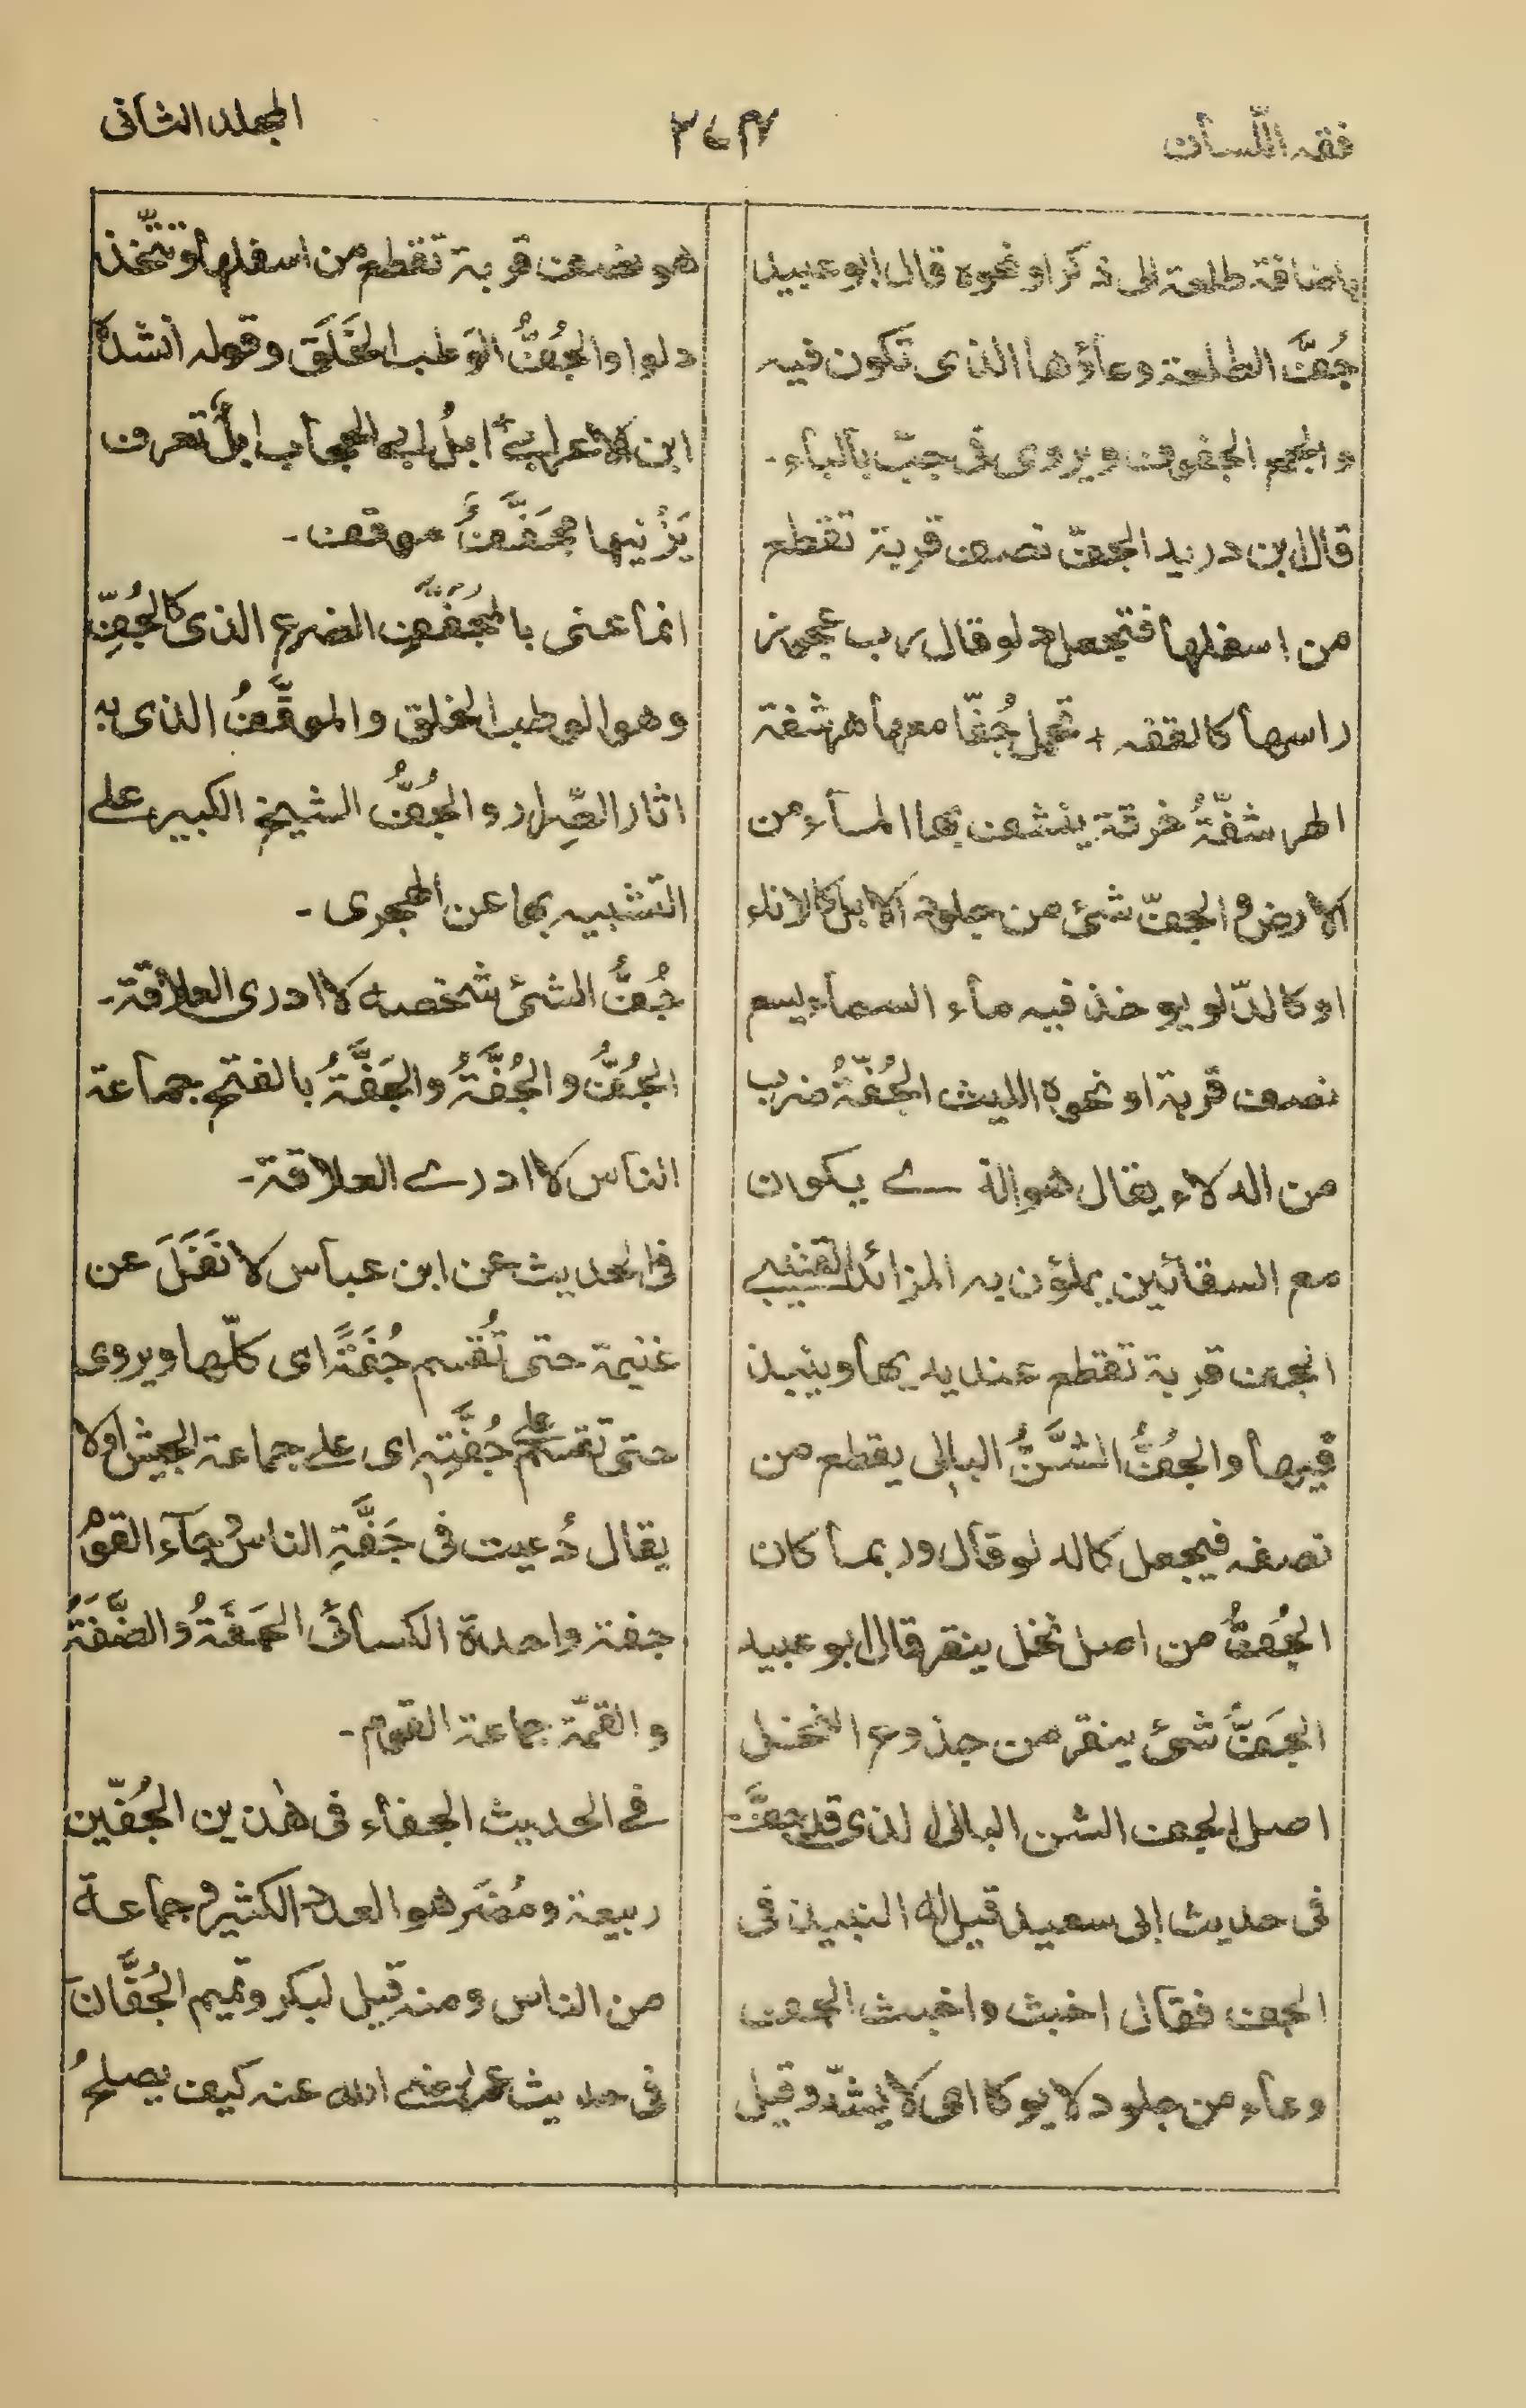 فقہ اللّسان
٣٤٧
المجلد الثانی
باضافة طلعة الی ذکر او نحوه قال ابو عبید
جُفُّ الطلعة وعاؤها الذی تکون فیه
والجمع الجفوف ویروی فی جبّ بالباء۔
قال ابن درید الجفّ نصف قربة تقطع
من اسفلها فتجعل دلو قال رب عجوز
راسها کالقفه + تحمل جُفّا معها هرشفة
الهرشفّةُ خرقة ینشف بها الماء من
الارض و الجفّ شئ من جلود الابل کالاناء
او کالدّلو یوخذ فیه ماء السماء یسع
نصف قربة او نحوه اللیث الجُفّةُ ضرب
من الدلاء یقال هو الذے یکون
مع السقائین یملؤن به المزائد القتیبی
الجف قربة تقطع عند یدیها وینبذ
فیها والجُفُّ الشَّنُّ البالی یقطع من
نصفه فیجعل کالدلو قال وربما کان
الجُفُّ من اصل نخل ینقر قال ابو عبید
الجَفُّ شئ ینقر من جذوع النخل
اصل الجف الشن البالی الذی قد جفَّ۔
فی حدیث ابی سعید قیل له النبیذ فی
الجف فقال اخبث واخبث الجف
وعاء من جلود لا یوکا ای لا یشدّ وقیل
هو نصف قربة تقطع من اسفلها و تتّخذ
دلوا والجُفُّ الوَطب الخَلَق وقوله انشدہٗ
ابن الاعرابیؒ ابلُ ابی الحجاب ابلٌ تعرف
یَزْینها مجَفَّفٌ موقف۔
انما عنی بالمُجَفَّفِ الضرع الذی کالجُفِّ
وهو الوطب الخلق والموقَّفُ الذی بہ
اثار الصِّرار والجُفُّ الشیخ الکبیر علے
التشبیه بها عن الهجری۔
جُفُّ الشئ شخصه لا ادری العلاقة۔
الجُفُّ والجُفَّةُ والجَفَّةُ بالفتح جماعة
الناس لا ادرے العلاقة۔
فی الحدیث عن ابن عباس لا نَفَلَ عن
غنیمة حتی تُقسم جُفَّةً ای کلّها ویروی
حتی تقسم علی جُفَّتِه ای علے جماعة الجیش اولا
یقال دُعیت فی جَفَّةِ الناس و جآء القومُ
جفة واحدة الکسائی الجَفَّةُ والضَّفَّةُ
والقمّة جماعة القوم۔
فے الحدیث الجفاء فی هٰذین الجُفّین
ربیعة ومُضَر هو العدد الکثیر و جماعة
من الناس ومنه قیل لبکر وتمیم الجُفَّانَ
فی حدیث عمر رضے الله عنه کیف یصلحُ